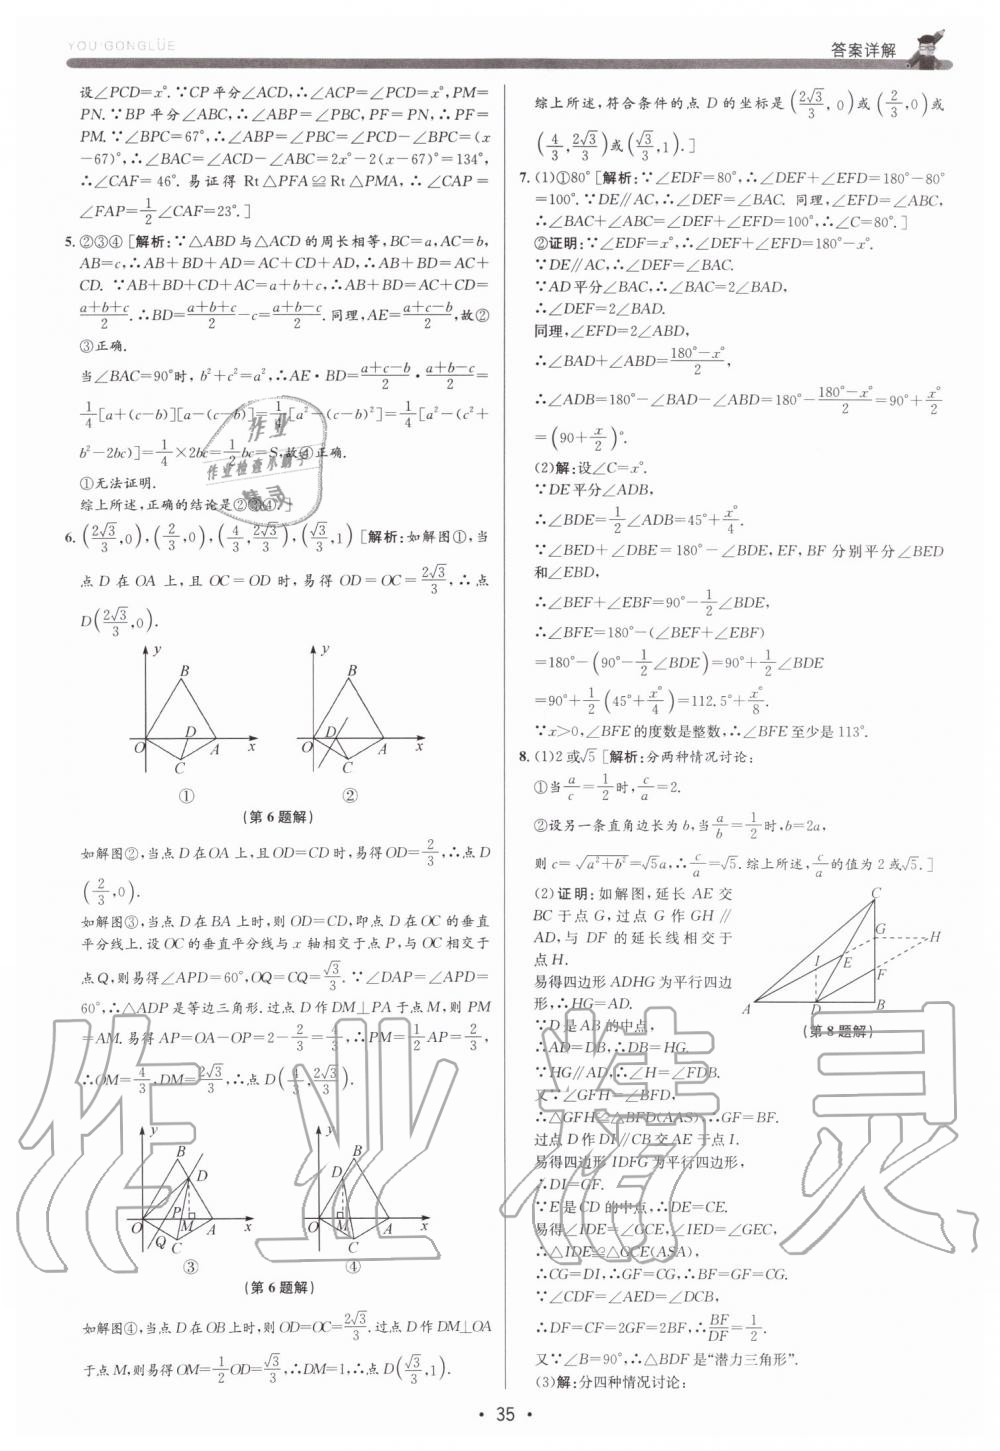 YOU GONGLÜE
答案详解
设∠PCD=x°.∵CP平分∠ACD,∴∠ACP=∠PCD=x°,PM=
PN.∵BP平分∠ABC,∴∠ABP=∠PBC,PF=PN,∴PF=
PM.∵∠BPC=67°,∴∠ABP=∠PBC=∠PCD-∠BPC=(x
-67)°,∴∠BAC=∠ACD-∠ABC=2x°-2(x-67)°=134°,
∴∠CAF=46°.易证得 Rt△PFA≌Rt△PMA,∴∠CAP=
∠FAP=1/2∠CAF=23°.]
5. ②③④ [解析:∵△ABD与△ACD的周长相等,BC=a,AC=b,
AB=c,∴AB+BD+AD=AC+CD+AD,∴AB+BD=AC+
CD. ∵AB+BD+CD+AC=a+b+c,∴AB+BD=AC+CD=
(a+b+c)/2.∴BD=(a+b+c)/2-c=(a+b-c)/2.同理,AE=(a+c-b)/2,故②
③正确.
当∠BAC=90°时,b²+c²=a²,∴AE·BD=(a+c-b)/2·(a+b-c)/2=
1/4[a+(c-b)][a-(c-b)]=1/4[a²-(c-b)²]=1/4[a²-(c²+
b²-2bc)]=1/4×2bc=1/2bc=S,故④正确.
①无法证明.
综上所述,正确的结论是②③④.]
6. (2√3/3,0),(2/3,0),(4/3,2√3/3),(√3/3,1) [解析:如解图①,当
点D在OA上,且OC=OD时,易得OD=OC=2√3/3,∴点
D(2√3/3,0).
y
B
O
D
A
x
C
①
y
B
O
D
A
x
C
②
(第6题解)
如解图②,当点D在OA上,且OD=CD时,易得OD=2/3,∴点D
(2/3,0).
如解图③,当点D在BA上时,则OD=CD,即点D在OC的垂直
平分线上.设OC的垂直平分线与x轴相交于点P,与OC相交于
点Q,则易得∠APD=60°,OQ=CQ=√3/3.∵∠DAP=∠APD=
60°,∴△ADP是等边三角形.过点D作DM⊥PA于点M,则PM
=AM.易得AP=OA-OP=2-2/3=4/3,∴PM=1/2AP=2/3,
∴OM=4/3,DM=2√3/3,∴点D(4/3,2√3/3).
y
B
D
P
O
M
A
x
Q
C
③
y
B
D
O
M
A
x
C
④
(第6题解)
如解图④,当点D在OB上时,则OD=OC=2√3/3.过点D作DM⊥OA
于点M,则易得OM=1/2OD=√3/3,∴DM=1,∴点D(√3/3,1).
综上所述,符合条件的点D的坐标是(2√3/3,0)或(2/3,0)或
(4/3,2√3/3)或(√3/3,1).]
7. (1)①80° [解析:∵∠EDF=80°,∴∠DEF+∠EFD=180°-80°
=100°.∵DE∥AC,∴∠DEF=∠BAC. 同理,∠EFD=∠ABC,
∴∠BAC+∠ABC=∠DEF+∠EFD=100°,∴∠C=80°.]
②证明:∵∠EDF=x°,∴∠DEF+∠EFD=180°-x°.
∵DE∥AC,∴∠DEF=∠BAC.
∵AD平分∠BAC,∴∠BAC=2∠BAD,
∴∠DEF=2∠BAD.
同理,∠EFD=2∠ABD,
∴∠BAD+∠ABD=(180°-x°)/2,
∴∠ADB=180°-∠BAD-∠ABD=180°-(180°-x°)/2=90°+x°/2
=(90+x/2)°.
(2)解:设∠C=x°.
∵DE平分∠ADB,
∴∠BDE=1/2∠ADB=45°+x°/4.
∵∠BED+∠DBE=180°-∠BDE,EF,BF分别平分∠BED
和∠EBD,
∴∠BEF+∠EBF=90°-1/2∠BDE,
∴∠BFE=180°-(∠BEF+∠EBF)
=180°-(90°-1/2∠BDE)=90°+1/2∠BDE
=90°+1/2(45°+x°/4)=112.5°+x°/8.
∵x>0,∠BFE的度数是整数,∴∠BFE至少是113°.
8. (1)2或√5 [解析:分两种情况讨论:
①当a/c=1/2时,c/a=2.
②设另一条直角边长为b,当a/b=1/2时,b=2a,
则c=√(a²+b²)=√5a,∴c/a=√5.综上所述,c/a的值为2或√5.]
(2)证明:如解图,延长AE交
BC于点G,过点G作GH∥
AD,与DF的延长线相交于
点H.
易得四边形ADHG为平行四边
形,∴HG=AD.
∵D是AB的中点,
∴AD=DB,∴DB=HG.
∵HG∥AD,∴∠H=∠FDB.
又∵∠GFH=∠BFD,
∴△GFH≌△BFD(AAS),∴GF=BF.
过点D作DI∥CB交AE于点I.
易得四边形IDFG为平行四边形,
∴DI=GF.
∵E是CD的中点,∴DE=CE.
易得∠IDE=∠GCE,∠IED=∠GEC,
∴△IDE≌△GCE(ASA),
∴CG=DI,∴GF=CG,∴BF=GF=CG.
∵∠CDF=∠AED=∠DCB,
∴DF=CF=2GF=2BF,∴BF/DF=1/2.
又∵∠B=90°,∴△BDF是“潜力三角形”.
(3)解:分四种情况讨论:
C
G
H
I
E
F
A
D
B
(第8题解)
作业
作业检查小助手
精灵
作业精灵
· 35 ·